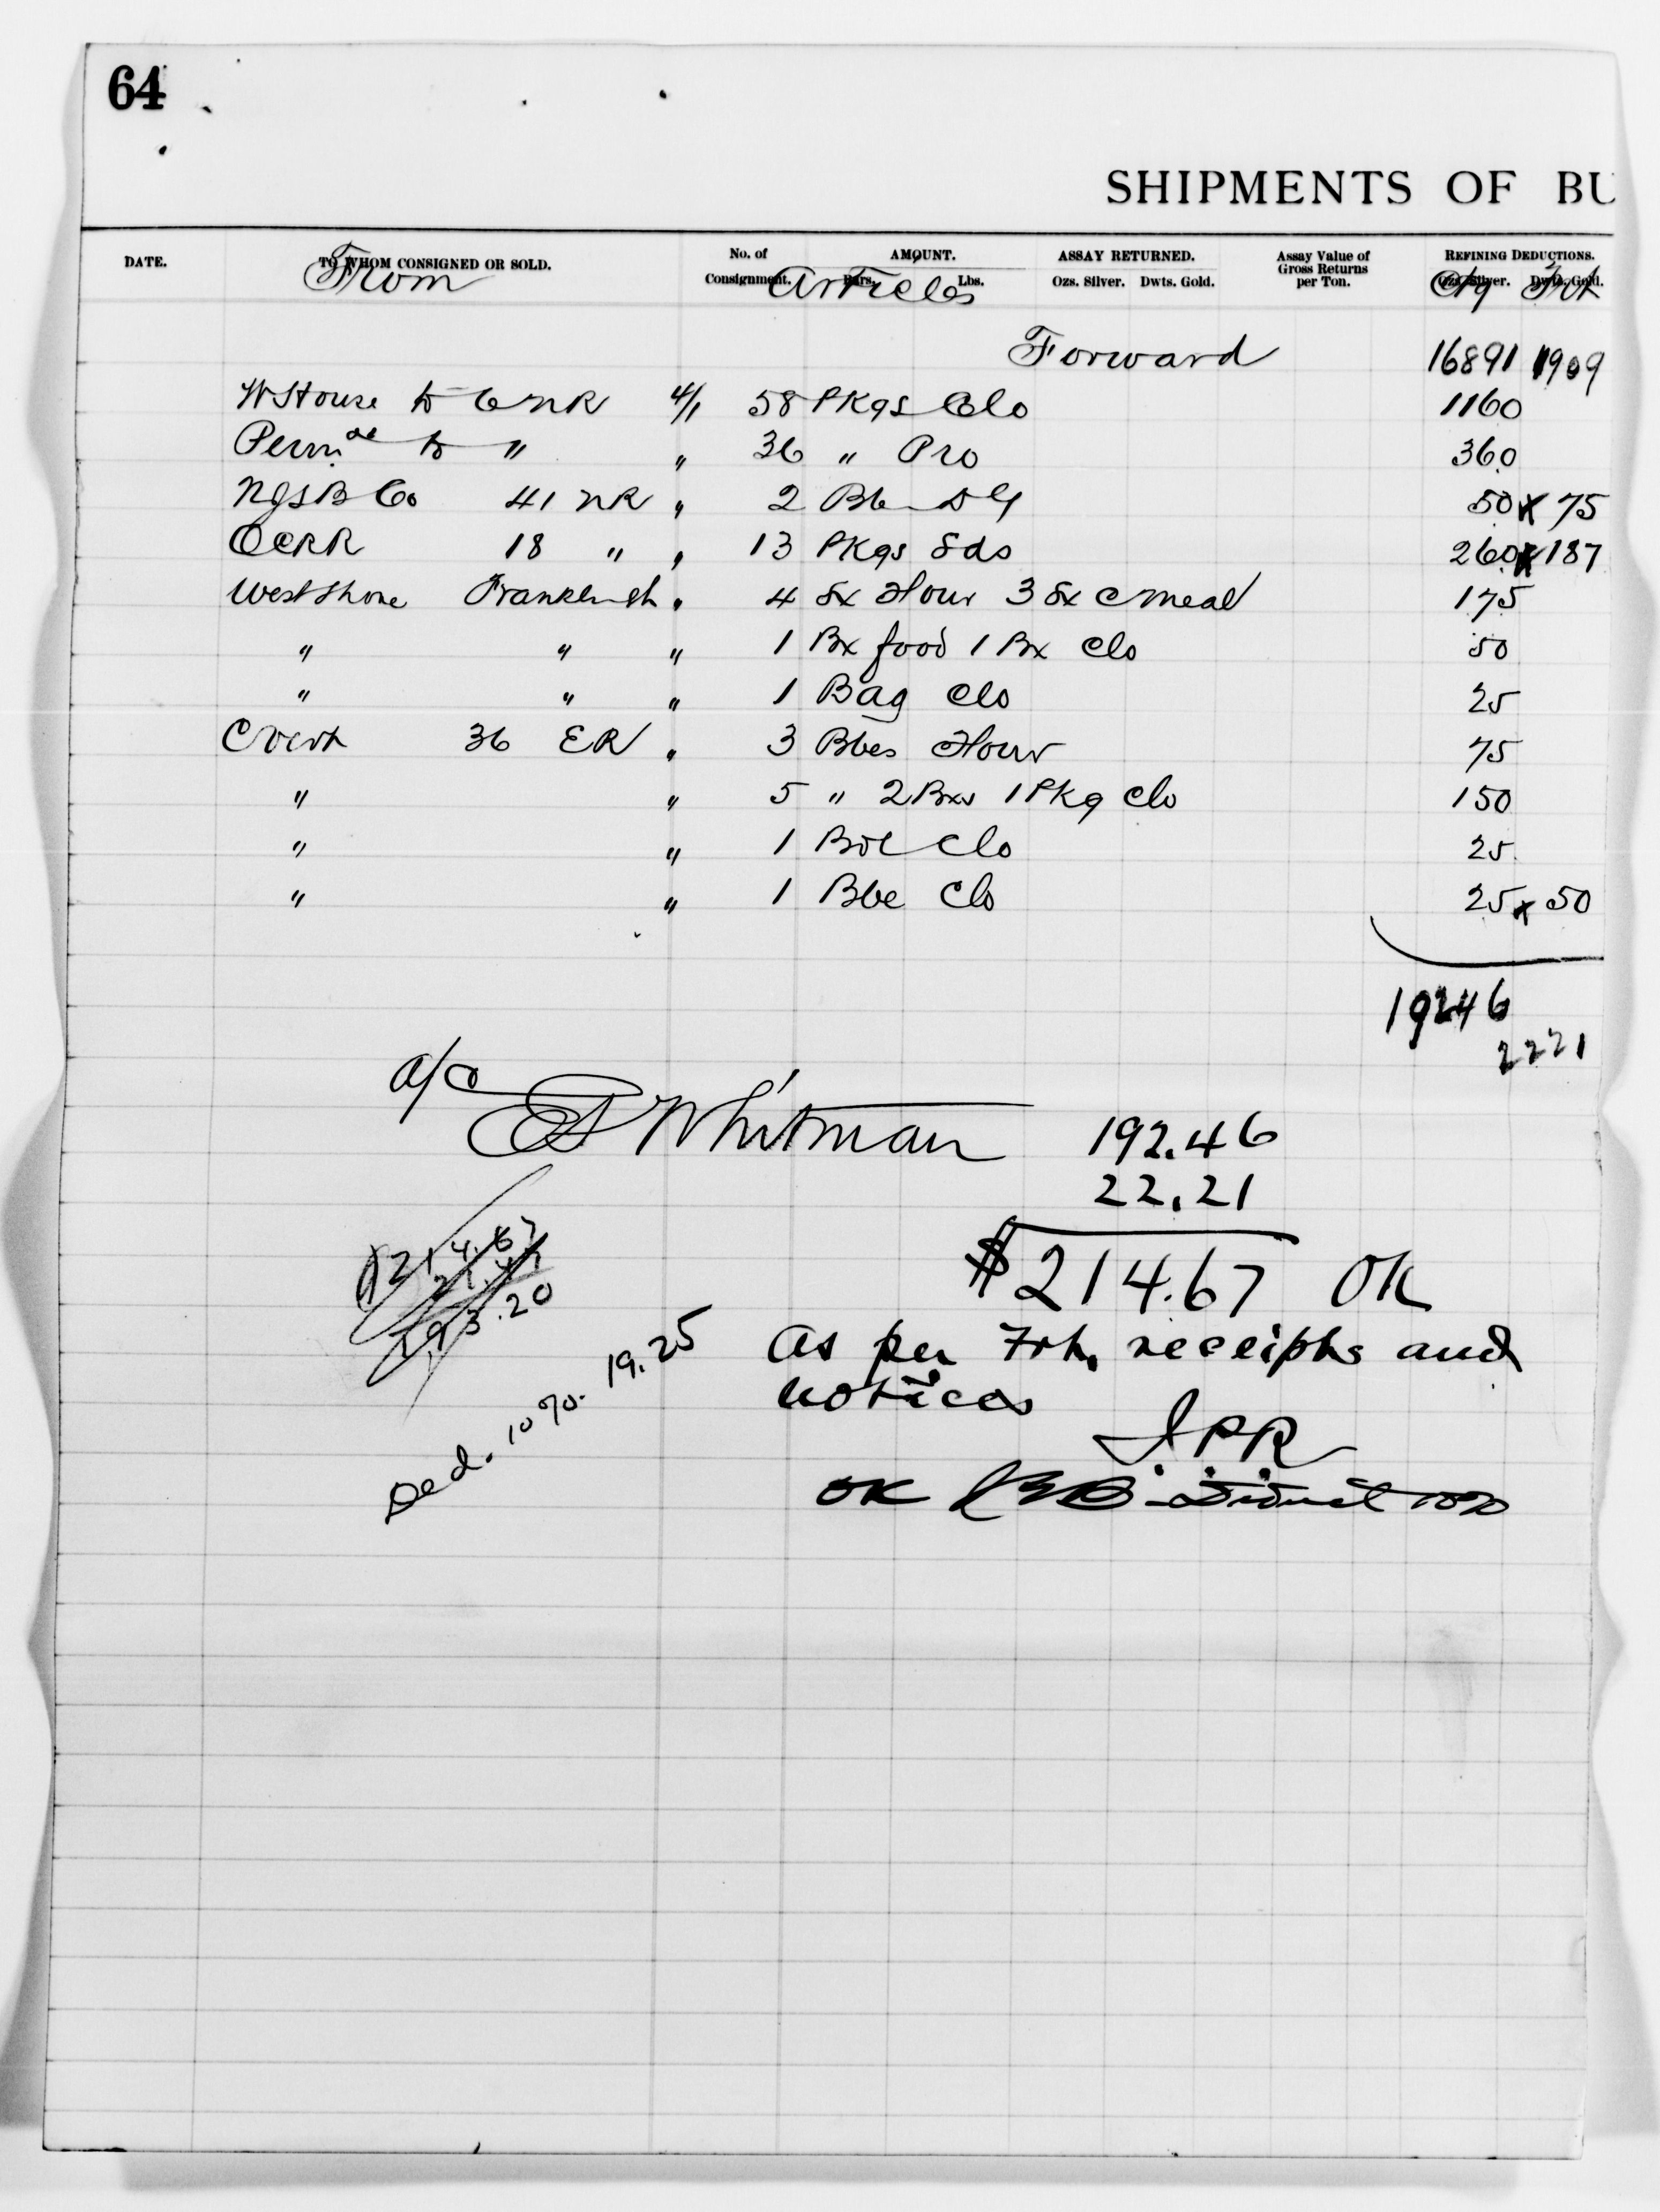 64
SHIPMENTS OF BU
DATE. TO WHOM CONSIGNED OR SOLD. No. of Consignment. AMOUNT. Bars. Lbs. ASSAY RETURNED. Ozs. Silver. Dwts. Gold. Assay Value of Gross Returns per Ton. REFINING DEDUCTIONS. Ozs. Silver. Dwts. Gold.
From Articles Ctg Frt
Forward 16891 1909
W House to 6 NR 4/1 58 PKgs Clo 1160
Penn to " " 36 " Pro 360
41 NR " 2 Bb DG 50 x 75
OCRR 18 " " 13 PKgs Sds 260 x 187
West Shore Franklin St " 4 Sx Flour 3 Sx C Meal 175
" " " 1 Bx food 1 Bx Clo 50
" " " 1 Bag Clo 25
36 ER " 3 Bbls Flour 75
" " 5 " 2 Bxs 1 PKg Clo 150
" " 1 Clo 25
" " 1 Bbl Clo 25 x 50
19246
2221
a/c
Whitman
192.46
22.21
$214.67 OK
$214.67
21.47
193.20
Ded. 10%. 19.25
As per Frt. receipts and
notices
J.P.R
OK